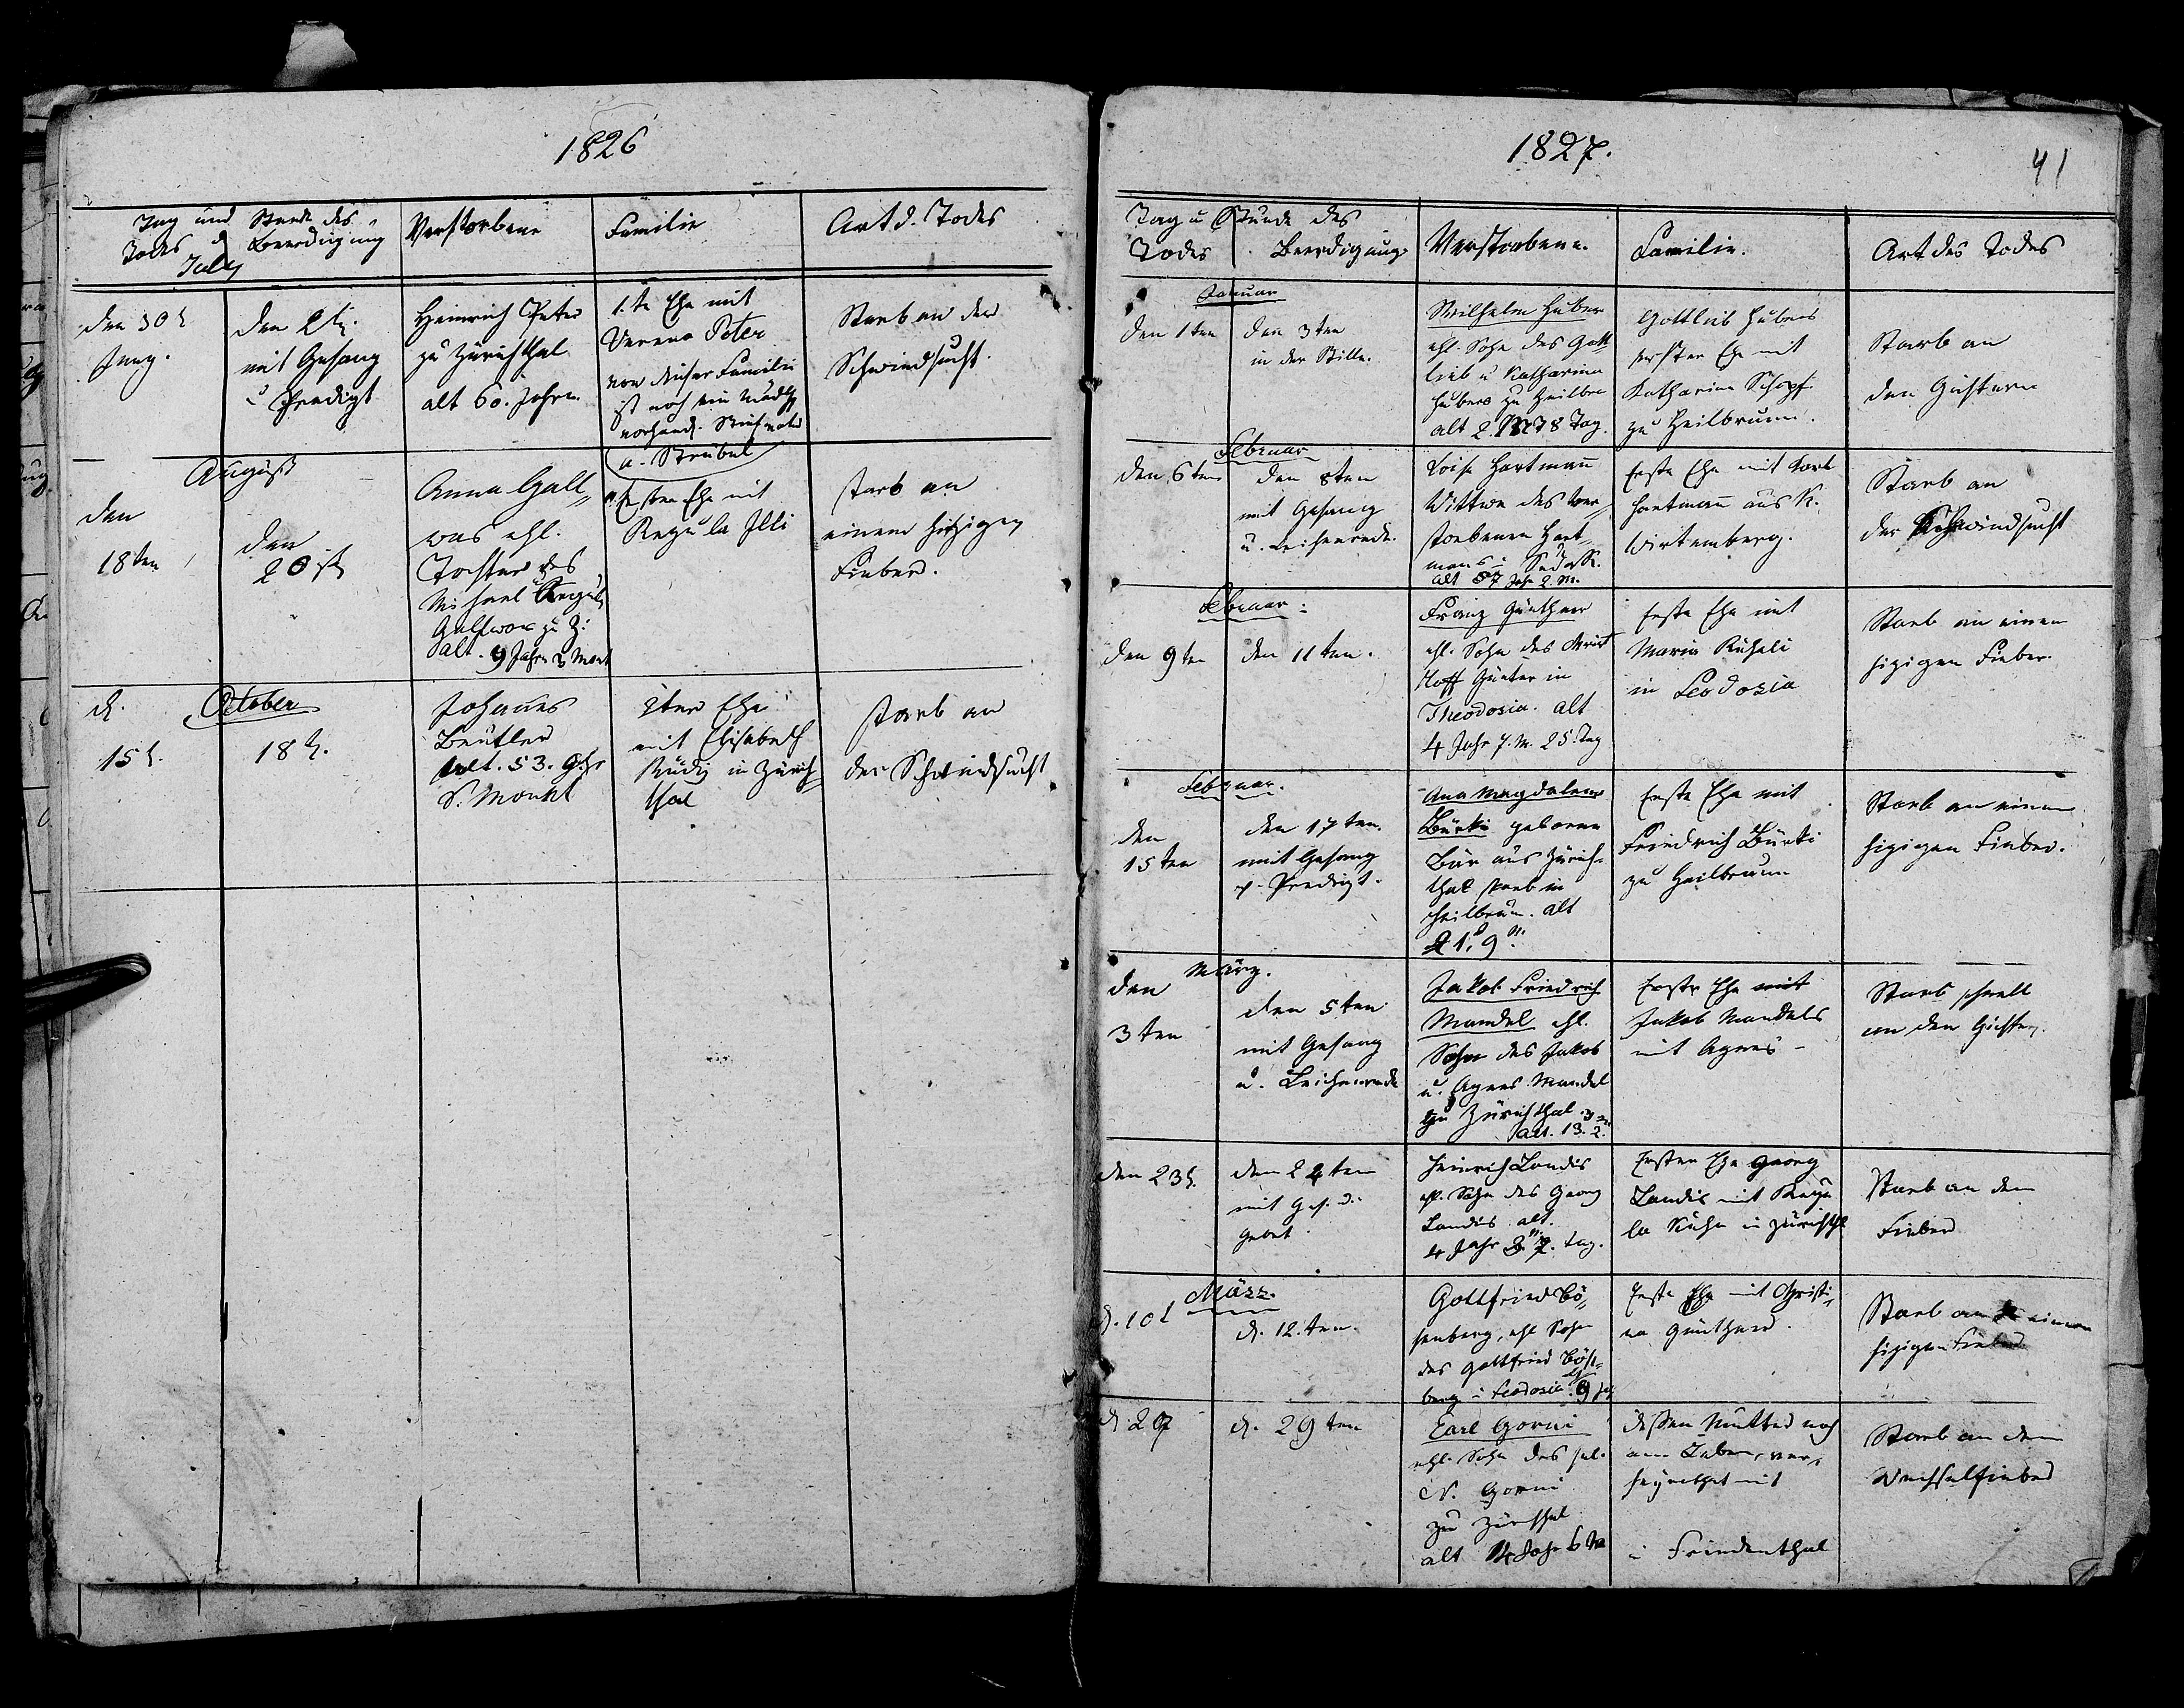 1826
Tag und Stunde des
Todes d Beerdigung
July
Verstorbene
Familie
Art d. Todes
den 30t
den 2t.
mit Gesang
u Predigt
Heinrich Peter
zu Zürichthal
alt 60. Jahre.
1.te Ehe mit
Verena Peter
von dieser Familie
ist noch ein
vorhand.
a. Strubel
Starb an der
Schwindsucht.
August
den
18ten
den
20st
Anna Gall„
was ehl.
Tochter des
Michael
Gallwas zu Z:
alt. 9 Jahr 3 Mont
Ersten Ehe mit
Regula Illi
starb an
einem hitzigen
Fieber.
October
d.
15t.
18t.
Johannes
Beutler
alt. 53. Jhr
8. Monat
2ter Ehe
mit Elisabeth
in Zürich
thal
starb an
der Schwindsucht
1827.
41
Tag u Stunde des
Todes . Beerdigung
Verstorbene.
Familie.
Art des Todes
Januar
den 1ten
den 3ten
in der Stille.
Wilhelm Huber
ehl. Sohn des Gott
lieb u Katharina
Hubers zu Heilbrn
alt 2. M 8 Tag.
Gottlieb Hubers
erster Ehe mit
Katharina Schopf
zu Heilbrunn.
Starb an
den Gichtern
Februar
den 6ten
den 8ten
mit Gesang
u. Leichenrede.
Loise Hartmañ
Wittwe des ver„
storbenen Hart„
mans
alt 57 Jahr 2. M.
Erste Ehe mit Karl
Hartmañ aus K.
Wirtemberg.
Starb an
der Schwindsucht
Februar:
den 9ten
den 11ten.
Franz Günther
ehl. Sohn des
Günter in
Theodosia. alt
4 Jahr 7. M. 25. Tag
Erste Ehe mit
Maria
in Feodosia
Starb an einem
hizigen Fieber.
Februar.
den
15ten
den 17ten.
mit Gesang
u. Predigt.
Ana Magdalena
Bürki geborene
Bär aus Zürich-
thal starb in
Heilbruñ. alt
21. J 9 M.
Erste Ehe mit
Friedrich Bürki
zu Heilbrunn
Starb an einem
hizigen Fieber.
März.
den
3ten
den 5ten
mit Gesang
u. Leichenrede
Jakob Friedrich
Mandel ehl.
Sohn des Jakob
u. Agnes Mandel
zu Zürichthal
alt. 13. 2.
Erste Ehe mit
Jakob Mandels
mit Agnes –
Starb schnell
an den Gichtern.
den 23t.
den 24ten
mit Ges. u.
Gebet.
Heinrich Landis
ehl. Sohn des Georg
Landis alt.
4 Jahr 3. M 2. tag.
Ersten Ehe Georg
Landis mit Regu
la in Zürichthl
Starb an dem
Fieber
März.
d. 10t
d. 12.ten.
Gottfried Bö„
senberg, ehl Sohn
des Gottfried Bösen„
berg i Feodosia. 9
Erste Ehe mit Christi„
na Günther.
Starb an einem
hizigen Fieber
d. 27
d. 29ten
Carl Gorni
ehl. Sohn des sel.
N. Gorni
zu Zürchthal
alt 14 Jahr 6 M
Dessen Mutter noch
am Leben, ver„
heyrathet mit
i Friedenthal
Starb an dem
Wechselfieber